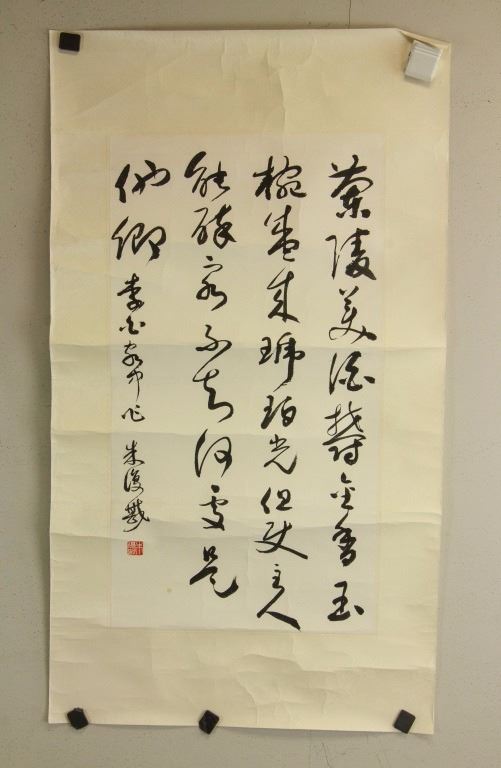 兰陵美酒郁金香玉
椀盛来琥珀光但使主人
能醉客不知何处是
他乡 李白客中作 朱復戡